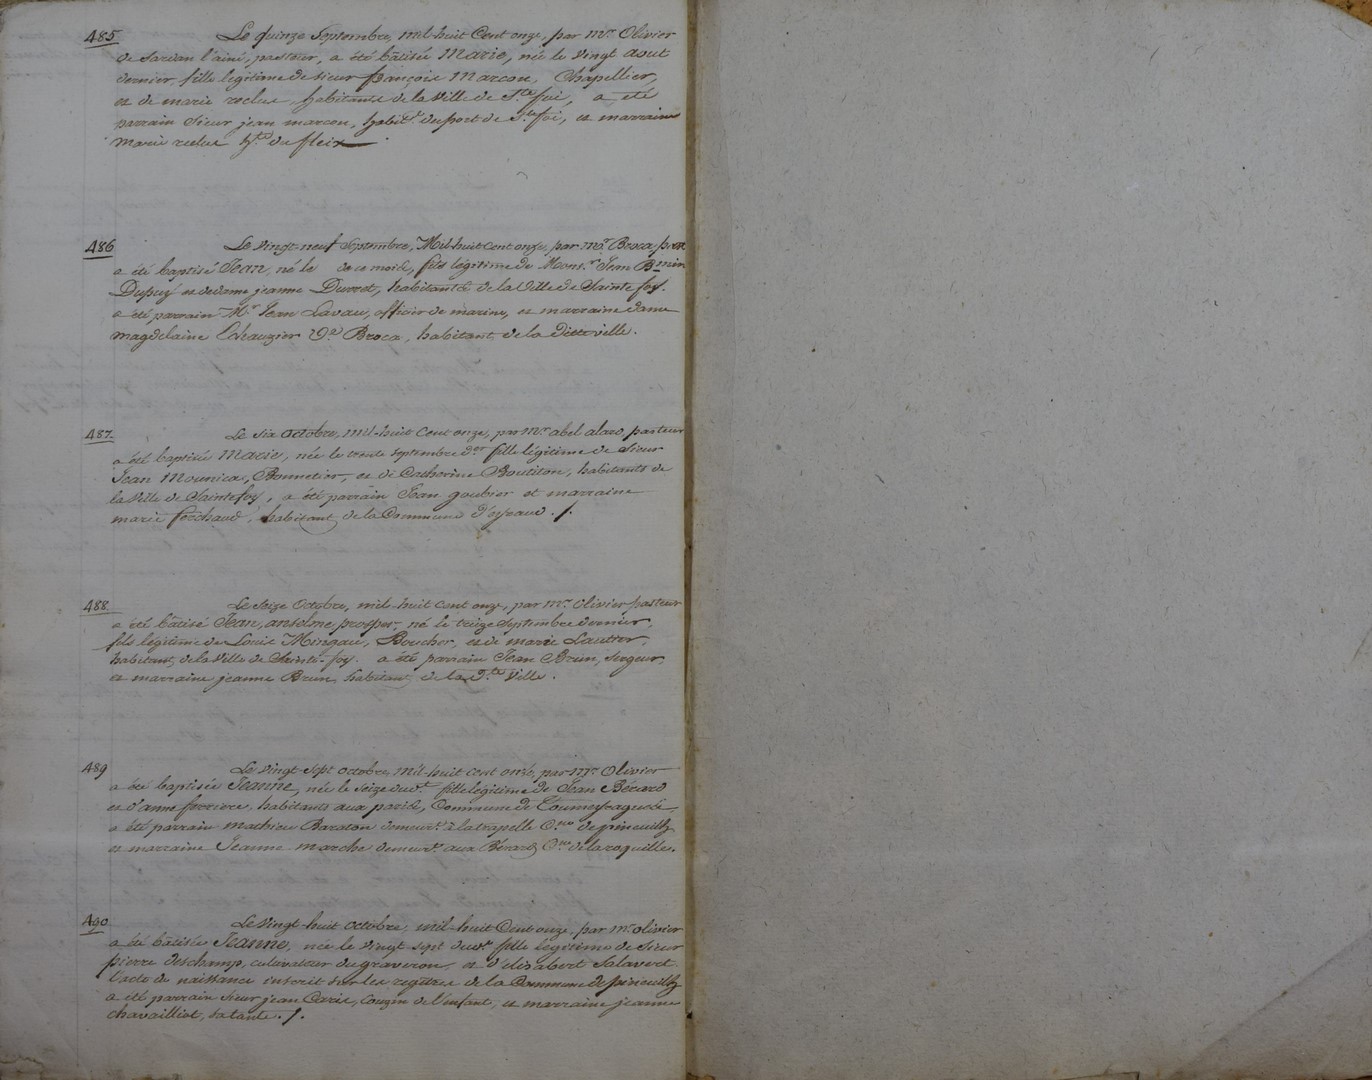 485 Le quinze Septembre, mil-huit Cent onze, par mr. Olivier
de Sardan l'ainé, pasteur, a été bâtisée Marie, née le vingt aout
dernier, fille legitime de sieur françois Marcou, Chapellier,
et de marie reclus, habitants de la Ville de Ste. foi, a été
parrain Sieur jean marcou, habit. du port de Ste. foi, et marraine
marie reclus hte. du fleix
486 Le vingt-neuf Septembre, Mil-huit cent onze, par mr. Broca
a été baptisé Jean, né le de ce mois, fils légitime de Monsr. Jean Bmin
Dupuy et de dame jeanne Durret, habitants de la Ville de Sainte foy.
a été parrain Mr. Jean Lavau, officier de marine, et marraine dame
magdelaine Broca, habitant de la ditte ville.
487. Le Six Octobre, mil-huit Cent onze, par mr. abel alard, pasteur
a été baptisée Marie, née le trente Septembre der. fille légitime de Sieur
Jean Mounica, Bonnetier, et de Catherine Boutiton, habitants de
la Ville de Saintefoy, a été parrain Jean goubier et marraine
marie forchaud, habitant de la Commune d'eyraud. /.
488. Le Seize Octobre, mil-huit cent onze, par mr. Olivier pasteur
a été bâtisé Jean, anselme prosper, né le treize Septembre dernier,
fils légitime de Louis Mingau, Boucher, et de marie Lautter,
habitant de la Ville de Sainte-foy. a été parrain Jean Brun, Sergeur,
et marraine jeanne Brun, habitant de la dte. Ville.
489 Le vingt-Sept octobre, mil-huit cent onze, par mr. Olivier
a été baptisée Jeanne, née le Seize duct. fille légitime de Jean Bérard
et d'anne ferriere, habitants aux parics, Commune de
a été parrain mathieu Baraton demeurt. à la trapelle Cne. de pineuilh
et marraine Jeanne marche demeurt. aux Bérard Cne. de laroquille.
490 Le vingt-huit octobre, mil-huit Cent onze, par mr. olivier
a été bâtisée Jeanne, née le vingt Sept duct. fille legitime de Sieur
pierre deschamp, cultivateur du graveron, et d'élisabert Salavert
l'acte de naissance inscrit sur les registre de la Commune de pineuilh
a été parrain Sieur jean Carie, Cousin de l'enfant, et marraine jeanne
chavailliot, sa tante. /.